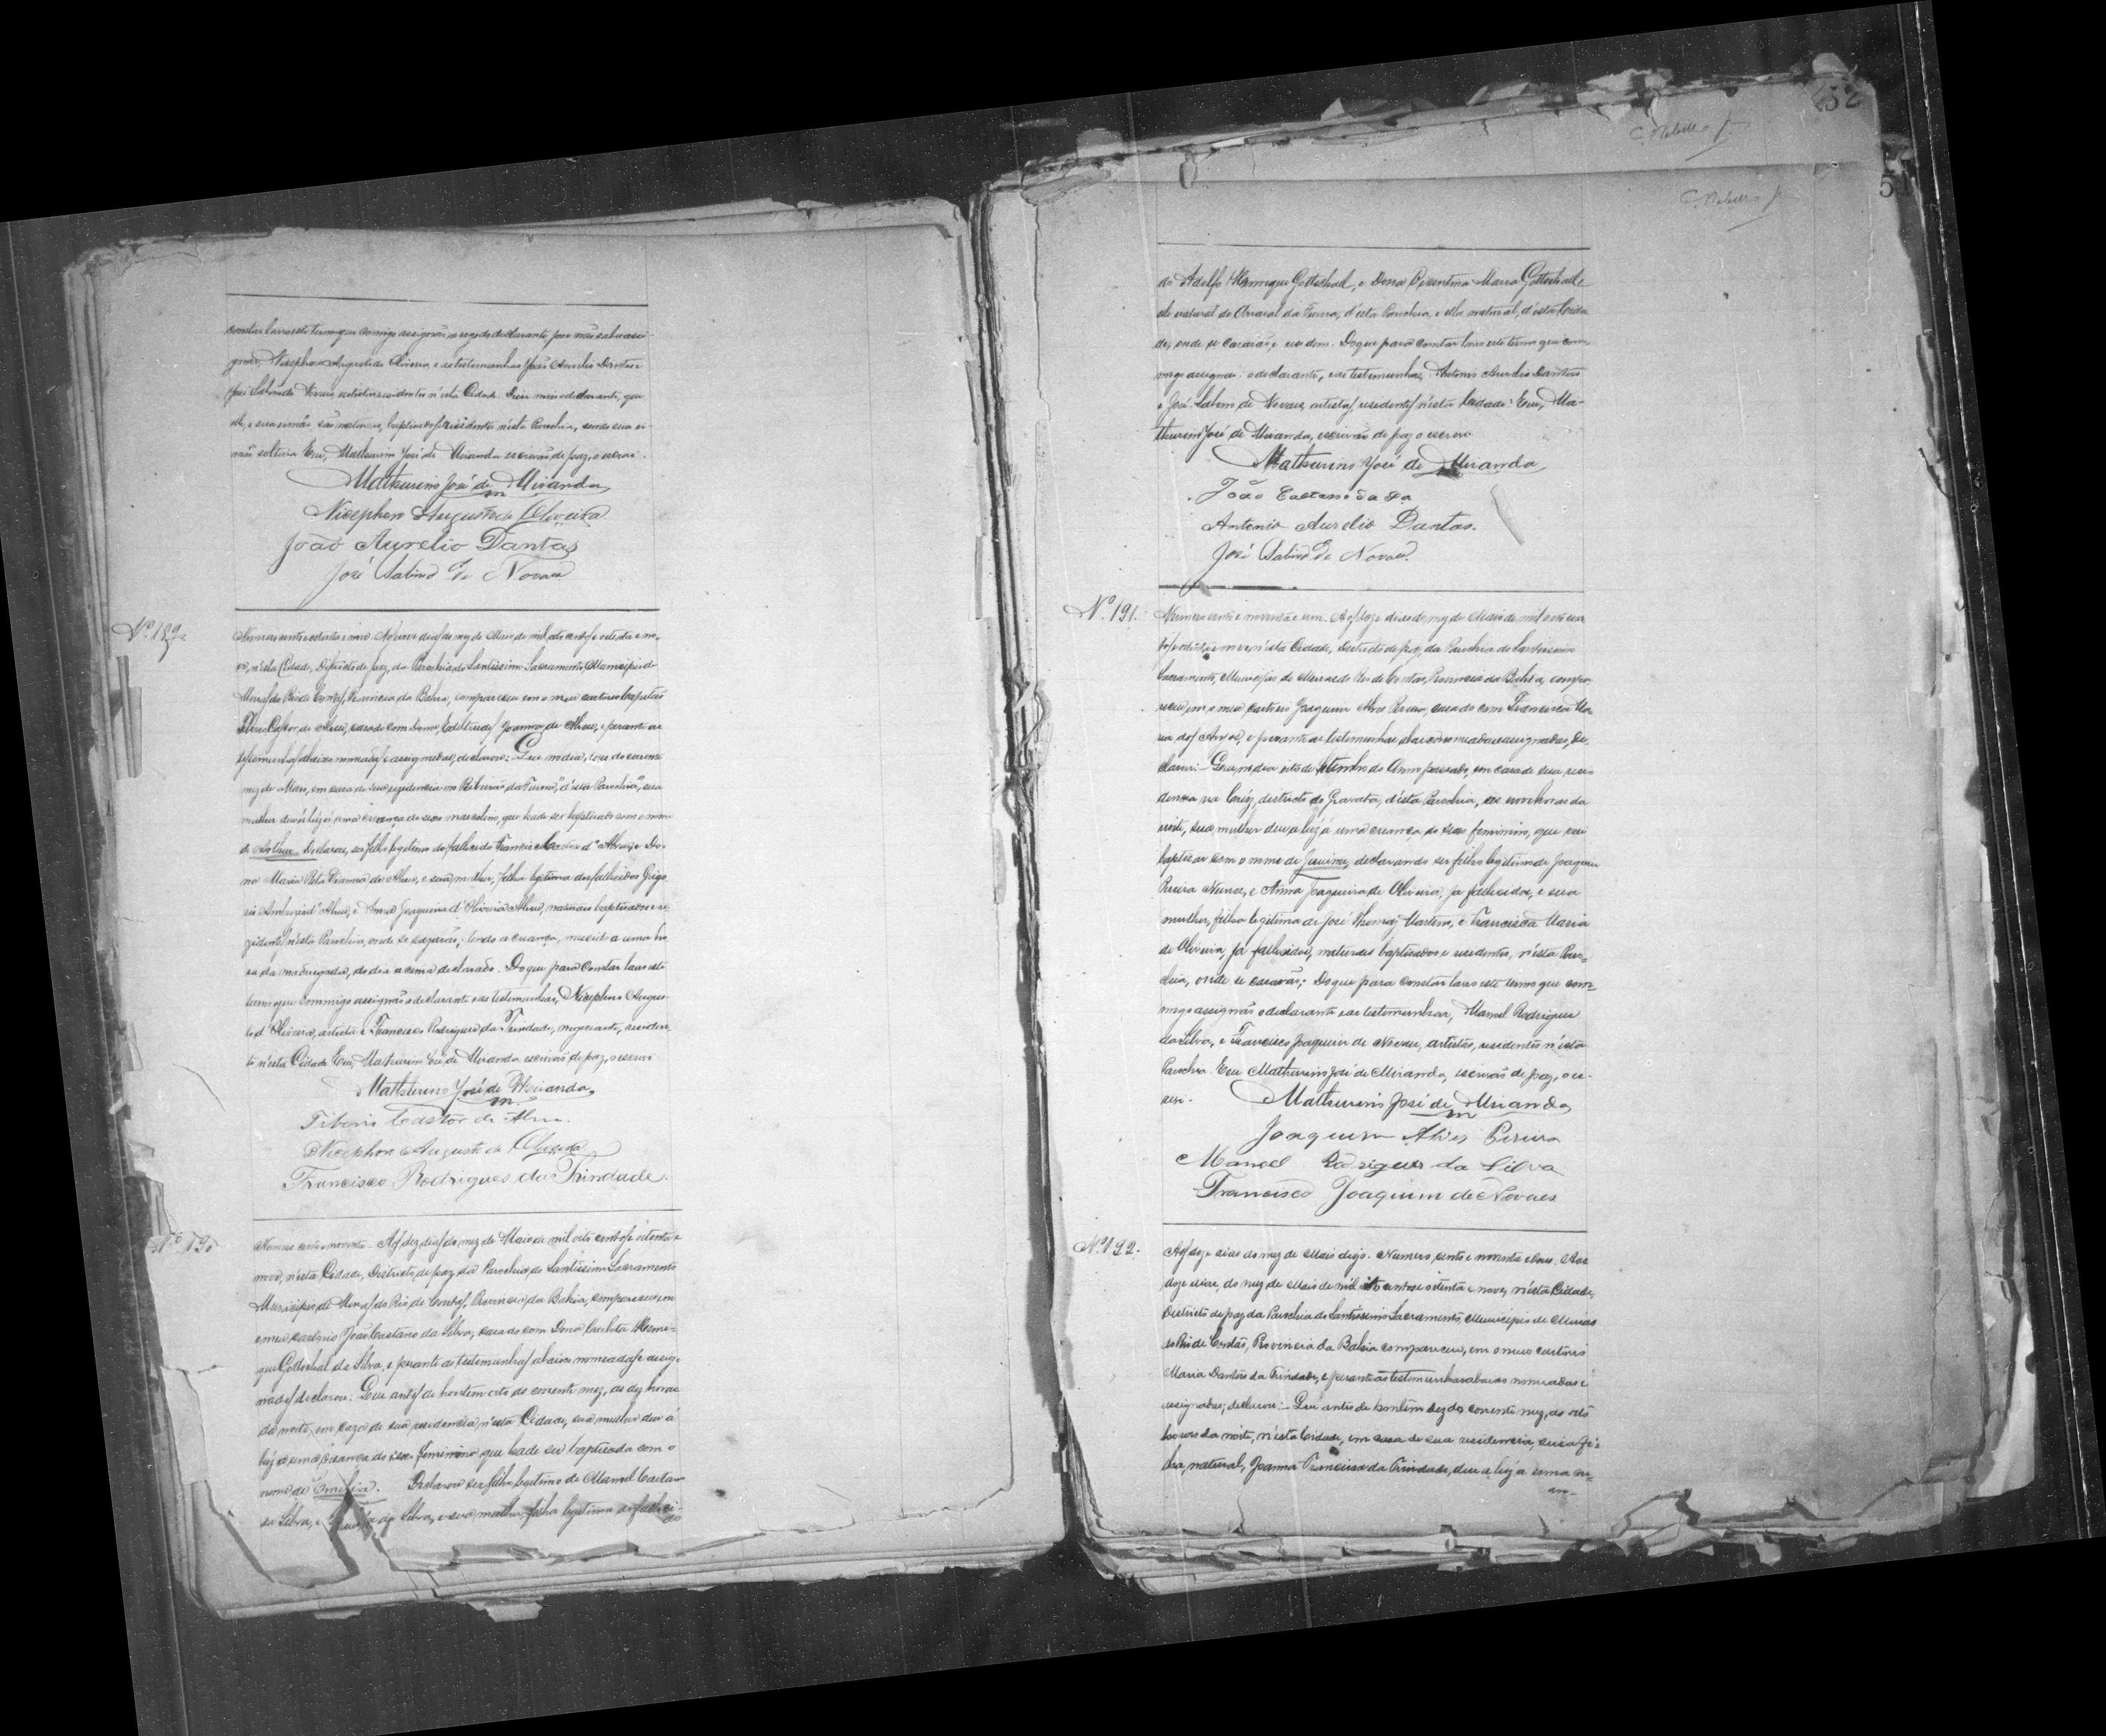 constar lavro este termo que comigo assignão a rogo do declarante por não saber assi-
gnar, Nicephoro Augusto de Oliveira, e as testemunhas João Aurelio Dantas e
José Sabino de Novaes, artistas residentes n'esta Cidade. Disse mais o declarante, que
elle, e sua irmã são naturaes, baptisados e residentes nesta Parochia, sendo sua ir-
mã solteira. Eu, Mathurino José de Miranda escrivão de paz, o escrevi.
Mathurino José de Miranda
Nicephoro Augusto de Oliveira
João Aurelio Dantas
José Sabino de Novaes
Nº 189.
Numero cento e oitenta e nove. Aos nove dias do mez de Maio de mil oito centos e oitenta e no-
ve, n'esta Cidade, Districto de paz, da Parochia do Santissimo Sacramento, Municipio de
Minas do Rio de Contas, Provincia da Bahia, compareceu em o meu cartorio
Castor de Abreu, casado com Dona Joanna de Abreu, e perante as
testemunhas abaixo nomeadas e assignadas, declarou: Que no dia do corrente
mez de Maio, em casa de sua residencia no Ribeirão da Furna, d'esta Parochia, sua
mulher deu á luz a uma criança do sexo masculino, que hade ser baptisado com o nome
de Arthur. Declarou, ser filho legitimo do fallecido Francisco d'Abreu, e Do-
na Maria Rita Vianna de Abreu, e sua mulher, filha legitima dos fallecidos Grigo-
rio d'Abreu, e Anna Joaquina d'Oliveira Abreu, naturaes baptisados e re-
zidentes n'esta Parochia, onde se casarão; tendo a criança, nascido a uma ho-
ra da madrugada, do dia acima declarado. Do que para constar lavro este
termo que commigo assignão o declarante e as testemunhas, Nicephoro Augus-
to d'Oliveira, artista e Francisco Rodrigues da Trindade, negociante, residen-
te n'esta Cidade. Eu, Mathurino José de Miranda escrivão de paz, o escrevi.
Mathurino José de Miranda
Tiberio Castor de Abreu.
Nicephoro Augusto de Oliveira
Francisco Rodrigues da Trindade.
Nº 190
Numero cento e noventa. Aos dez dias do mez de Maio de mil oito centos e oitenta e
nove, n'esta Cidade, Districto de paz, da Parochia do Santissimo Sacramento
Municipio de Minas do Rio de Contas, Provincia da Bahia, compareceu em
o meu cartorio João Caetano da Silva, casado com Dona Carlota Henri-
que Gotteschal da Silva, e perante as testemunhas abaixo nomeadas e assig-
nadas declarou: Que antes de hontem oito do corrente mez, as dez horas
da noite, em caza de sua residencia n'esta Cidade, sua mulher deu á
luz a uma criança do sexo feminino que hade ser baptisada com o
nome de Emilia. Declarou ser filho legitimo de Manoel Caetano
da Silva, e da Silva, e sua mulher, filha legitima dos falleci-
do
52
5
do Adolfo Henrique Gotteschal, e Dona Maria Gotteschal
elle natural do Arraial da Furna, d'esta Parochia, e ella natural d'esta Cida-
de, onde se casarão, e residem. Do que para constar lavro este termo que com-
migo assignão o declarante, e as testemunhas, Antonio Aurelio Dantas
e José Sabino de Novaes, artistas, residentes n'esta Cidade. Eu, Ma-
thurino José de Miranda, escrivão de paz o escrevi
Mathurino José de Miranda
João Caetano da Sa
Antonio Aurelio Dantas.
José Sabino de Novaes.
Nº 191.
Numero cento e noventa e um. Aos doze dias do mez de Maio de mil oito cen-
tos e oitenta e nove, n'esta Cidade, Districto de paz, da Parochia do Santissimo
Sacramento, Municipio de Minas do Rio de Contas, Provincia da Bahia, compa-
receu em o meu cartorio Joaquim Alves Pereira, casado com Francisca Ma-
ria dos Anjos, e perante as testemunhas abaixo nomeadas e assignadas, de-
clarou: Que, no dia oito de Setembro do Anno passado, em casa de sua resi-
dencia na Cruz, districto do Gravatá, d'esta Parochia, as nove horas da
noite, sua mulher deu a luz á uma criança do sexo feminino, que vai
baptisar com o nome de declarando ser filho legitimo de Joaquim
Pereira Nunes, e Anna Joaquina de Oliveira, ja fallecidos, e sua
mulher, filha legitima de José Thomaz Martins, e Francisca Maria
de Oliveira, já fallecidos, naturaes baptisados e residentes, n'esta Paro-
chia, onde se casarão; Do que para constar lavro este termo que com-
migo assignão o declarante e as testemunhas, Manoel Rodrigues
da Silva, e Francisco Joaquim de Novaes, artistas, residentes n'esta
Parochia. Eu Mathurino José de Miranda, escrivão de paz, o es-
crevi. Mathurino José de Miranda
Joaquim Alves Pereira
Manoel Rodrigues da Silva
Francisco Joaquim de Novaes
Nº 192.
Aos doze dias do mez de Maio digo. Numero, cento e noventa e dous. Aos
doze dias, do mez de Maio de mil oito centos e oitenta e nove, n'esta Cidade,
Districto de paz, da Parochia do Santissimo Sacramento, Municipio de Minas
do Rio de Contas, Provincia da Bahia compareceu, em o meu cartorio
Maria Dantas da Trindade, e perante as testemunhas abaixo nomeadas e
assignadas, declarou: Que antes de hontem dez do corrente mez, as oito
horas da noite, n'esta Cidade, em casa de sua residencia, sua fi-
lha, natural, Joanna Francisca da Trindade, deu a luz a uma cri-
an-